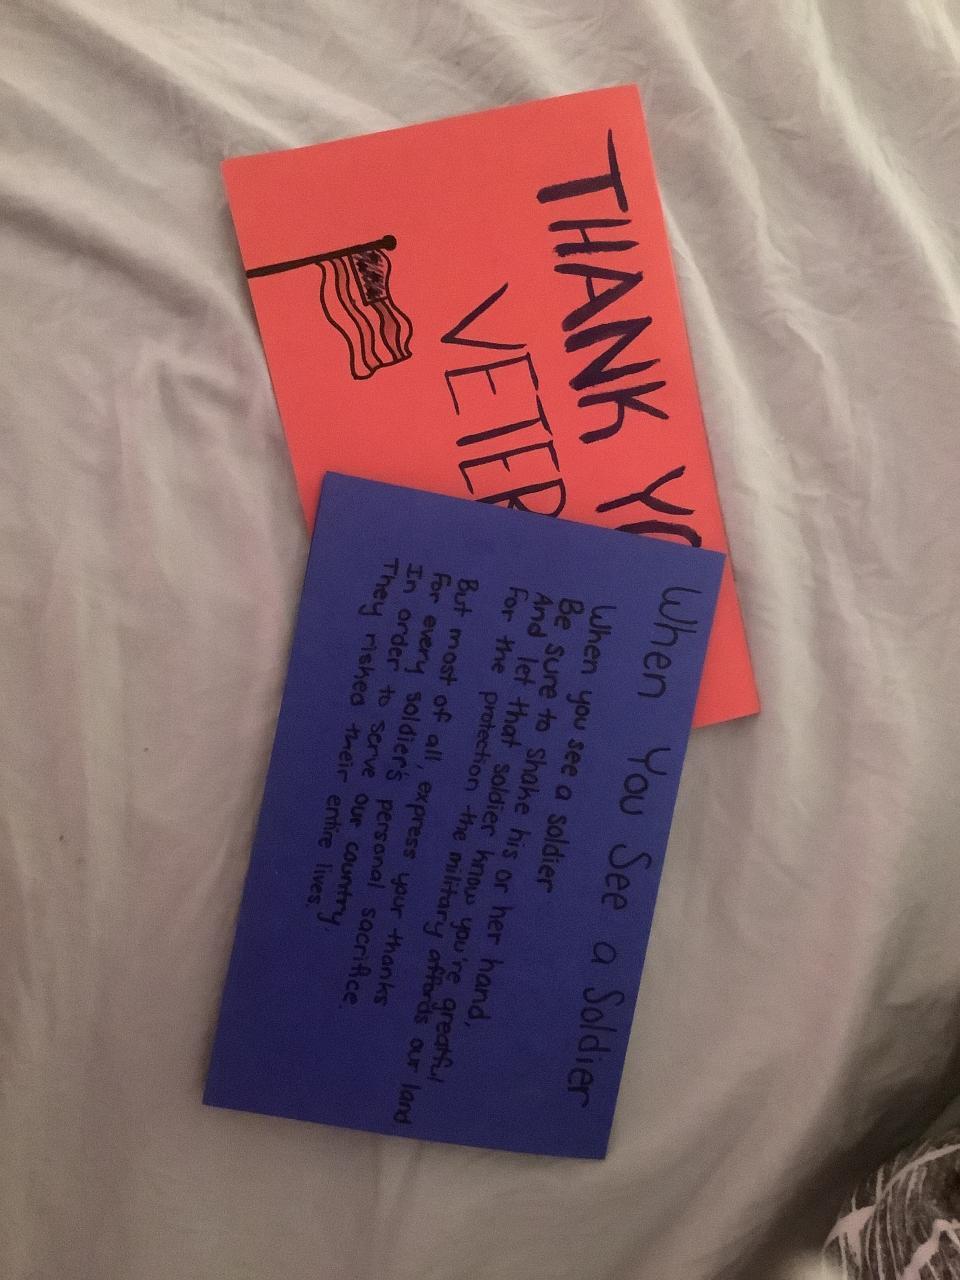 THANK YO
VETER
When You See a Soldier
When you see a soldier
Be sure to shake his or her hand,
And let that soldier know you're greatful
For the protection the military affords our land
But most of all, express your thanks
For every soldier's personal sacrifice.
In order to serve our country,
They risked their entire lives.